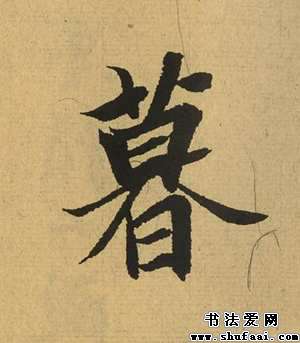 暮
书法爱网
www.shufaai.com